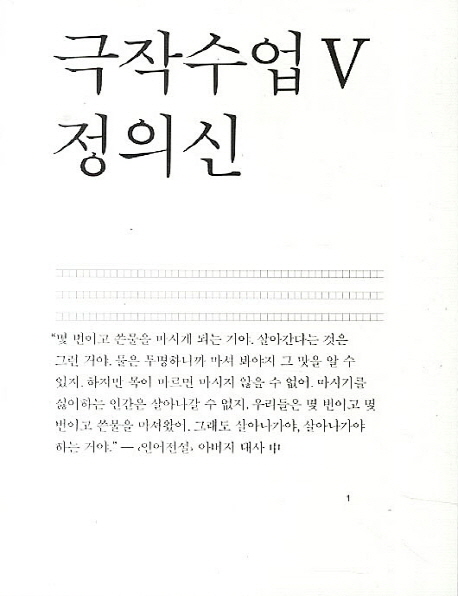 극작수업 V
정의신
“몇 번이고 쓴물을 마시게 되는 거야. 살아간다는 것은
그런 거야. 물은 투명하니까 마셔 봐야지 그 맛을 알 수
있지. 하지만 목이 마르면 마시지 않을 수 없어. 마시기를
싫어하는 인간은 살아나갈 수 없지. 우리들은 몇 번이고 몇
번이고 쓴물을 마셔왔어. 그래도 살아나가야, 살아나가야
하는 거야.” — <인어전설> 아버지 대사 中
1